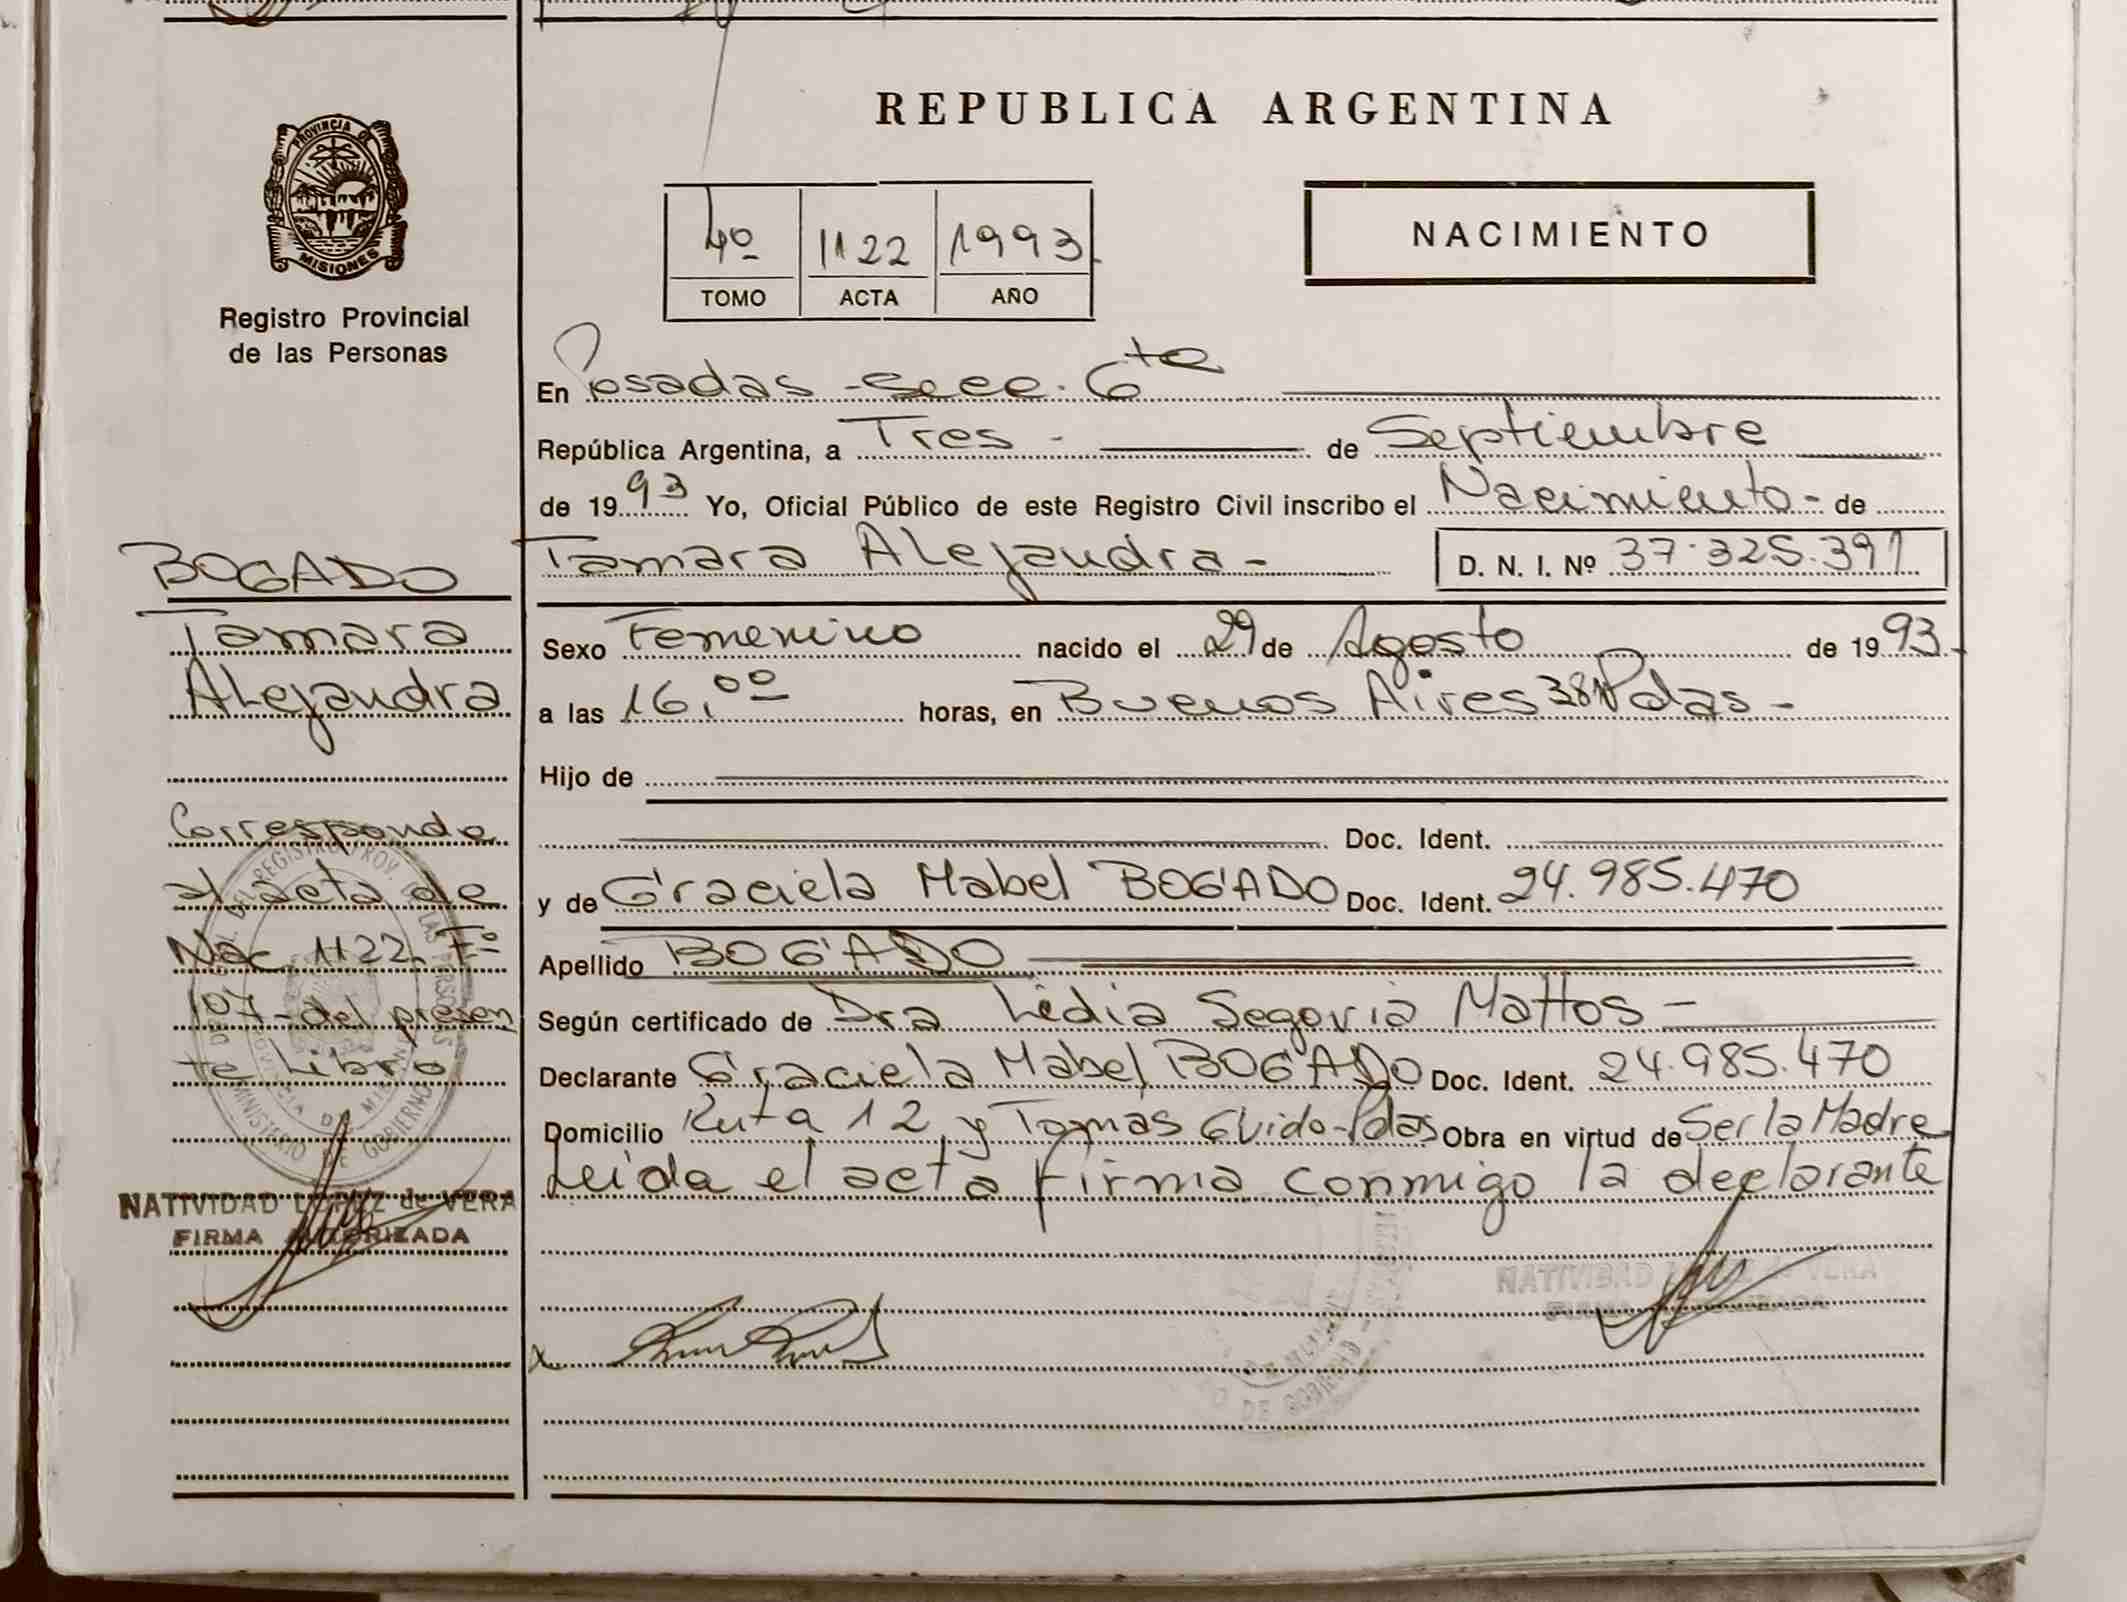 PROVINCIA DE
MISIONES
Registro Provincial
de las Personas
BOGADO
Tamara
Alejandra
Corresponde
al acta de
Nac. 1122. Fº
107 - del presen
te Libro
NATIVIDAD LOPEZ de VERA
FIRMA AUTORIZADA
REPUBLICA ARGENTINA
4º 1122 1993
TOMO ACTA AÑO
NACIMIENTO
En Posadas - Secc. 6ta
República Argentina, a Tres - de Septiembre
de 1993 Yo, Oficial Público de este Registro Civil inscribo el Nacimiento - de
Tamara Alejandra - D. N. I. Nº 37.325.391
Sexo Femenino nacido el 29 de Agosto de 1993.
a las 16,00 horas, en Buenos Aires Pdas -
Hijo de
Doc. Ident.
y de Graciela Mabel BOGADO Doc. Ident. 24.985.470
Apellido BOGADO
Según certificado de Dra Lidia Segovia Mattos -
Declarante Graciela Mabel BOGADO Doc. Ident. 24.985.470
Domicilio Ruta 12 y Tomas Guido - Pdas Obra en virtud de Ser la Madre
Leida el acta firma conmigo la declarante
NATIVIDAD VERA
x